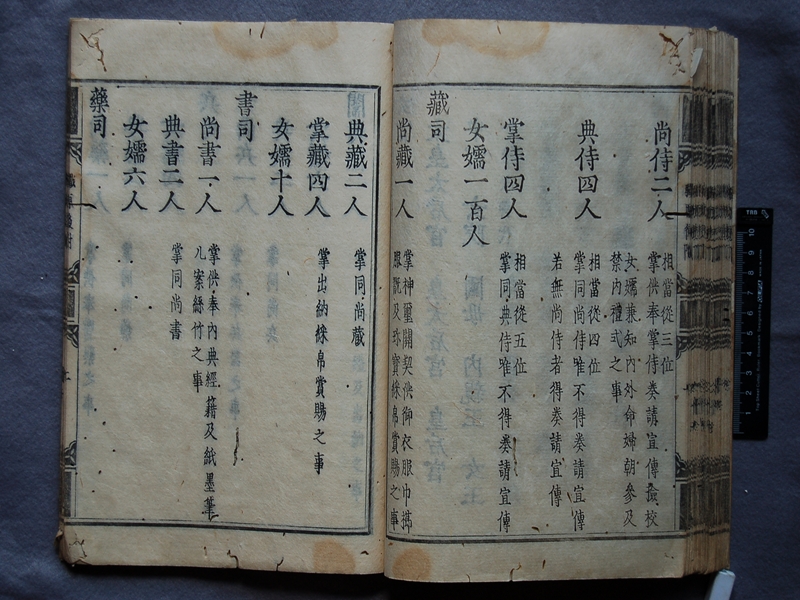 尚侍二人
相當從三位
掌供奉掌侍奏請宣傳㪘校
女嬬兼知內外命婦朝參及
禁內禮式之事
典侍四人
相當從四位
掌同尚侍唯不得奏請宣傳
若無尚侍者得奏請宣傳
掌侍四人
相當從五位
掌同典侍唯不得奏請宣傳
女嬬一百人
藏司
尚藏一人
掌神璽關契供御衣服巾櫛
服翫及珎寶綵帛賞賜之事
典藏二人
掌同尚藏
掌藏四人
掌出納綵帛賞賜之事
女嬬十人
書司
尚書一人
掌供奉內典經籍及紙墨筆
几案絲竹之事
典書二人
掌同尚書
女嬬六人
藥司